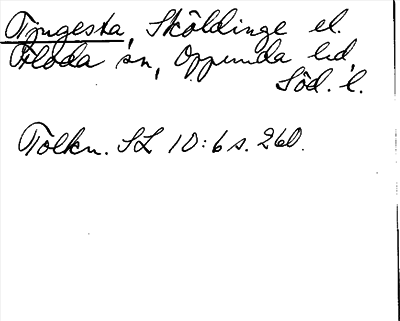 Tjugesta, Sköldinge el.
Floda sn, Oppunda hd,
Söd. l.
Tolkn. SL 10:6 s. 260.